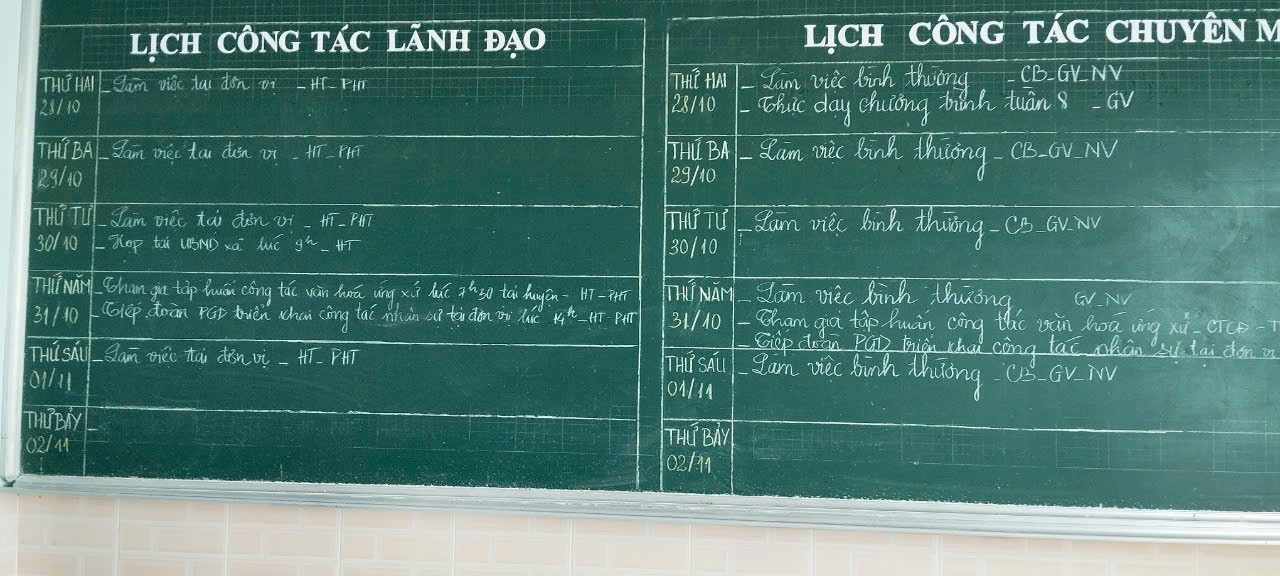 LỊCH CÔNG TÁC LÃNH ĐẠO
THỨ HAI
28/10
- Làm việc tại đơn vị - HT - PHT
THỨ BA
29/10
- Làm việc tại đơn vị - HT - PHT
THỨ TƯ
30/10
- Làm việc tại đơn vị - HT - PHT
- Họp tại UBND xã lúc 9h - HT
THỨ NĂM
31/10
- Tham gia tập huấn công tác văn hoá ứng xử lúc 7h30 tại huyện - HT - PHT
- Tiếp đoàn PGD triển khai công tác nhân sự tại đơn vị lúc 14h - HT - PHT
THỨ SÁU
01/11
- Làm việc tại đơn vị - HT - PHT
THỨ BẢY
02/11
-
LỊCH CÔNG TÁC CHUYÊN M
THỨ HAI
28/10
- Làm việc bình thường - CB - GV - NV
- Thực dạy chương trình tuần 8 - GV
THỨ BA
29/10
- Làm việc bình thường - CB - GV - NV
THỨ TƯ
30/10
- Làm việc bình thường - CB - GV - NV
THỨ NĂM
31/10
- Làm việc bình thường GV - NV
- Tham gia tập huấn công tác văn hoá ứng xử -
- Tiếp đoàn PGD triển khai công tác nhân sự tại đơn vị
THỨ SÁU
01/11
- Làm việc bình thường - CB - GV - NV
THỨ BẢY
02/11